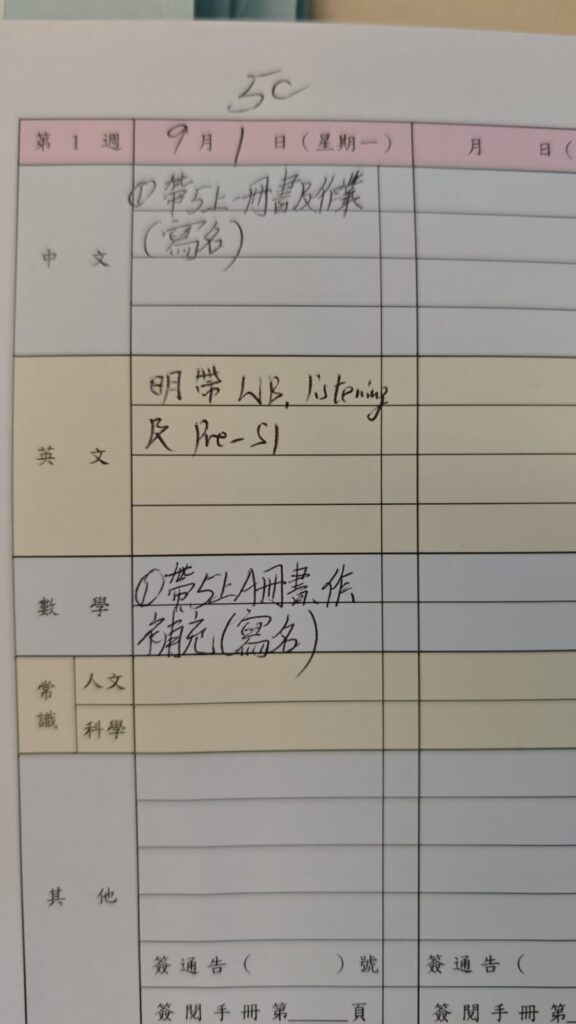 5C
第 1 週 9月1日(星期一) 月 日(
中 文
①帶5上一冊書及作業
(寫名)
英 文
明帶 WB, listening
及 Pre-S1
數 學
①帶5上A冊書、作、
補充(寫名)
常識
人文
科學
其 他
簽通告( )號 簽通告(
簽閱手冊第____頁 簽閱手冊第